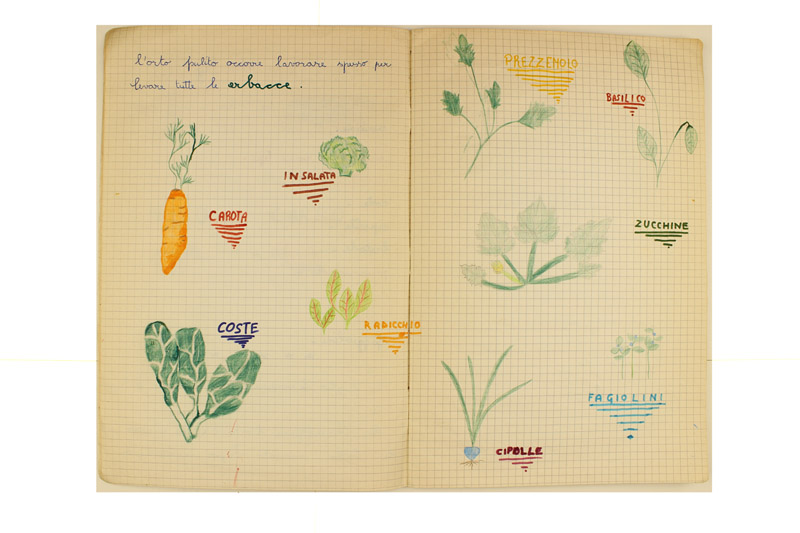 l'orto pulito occorre lavorare spesso per
levare tutte le erbacce.
INSALATA
CAROTA
COSTE
RADICCHIO
PREZZEMOLO
BASILICO
ZUCCHINE
FAGIOLINI
CIPOLLE